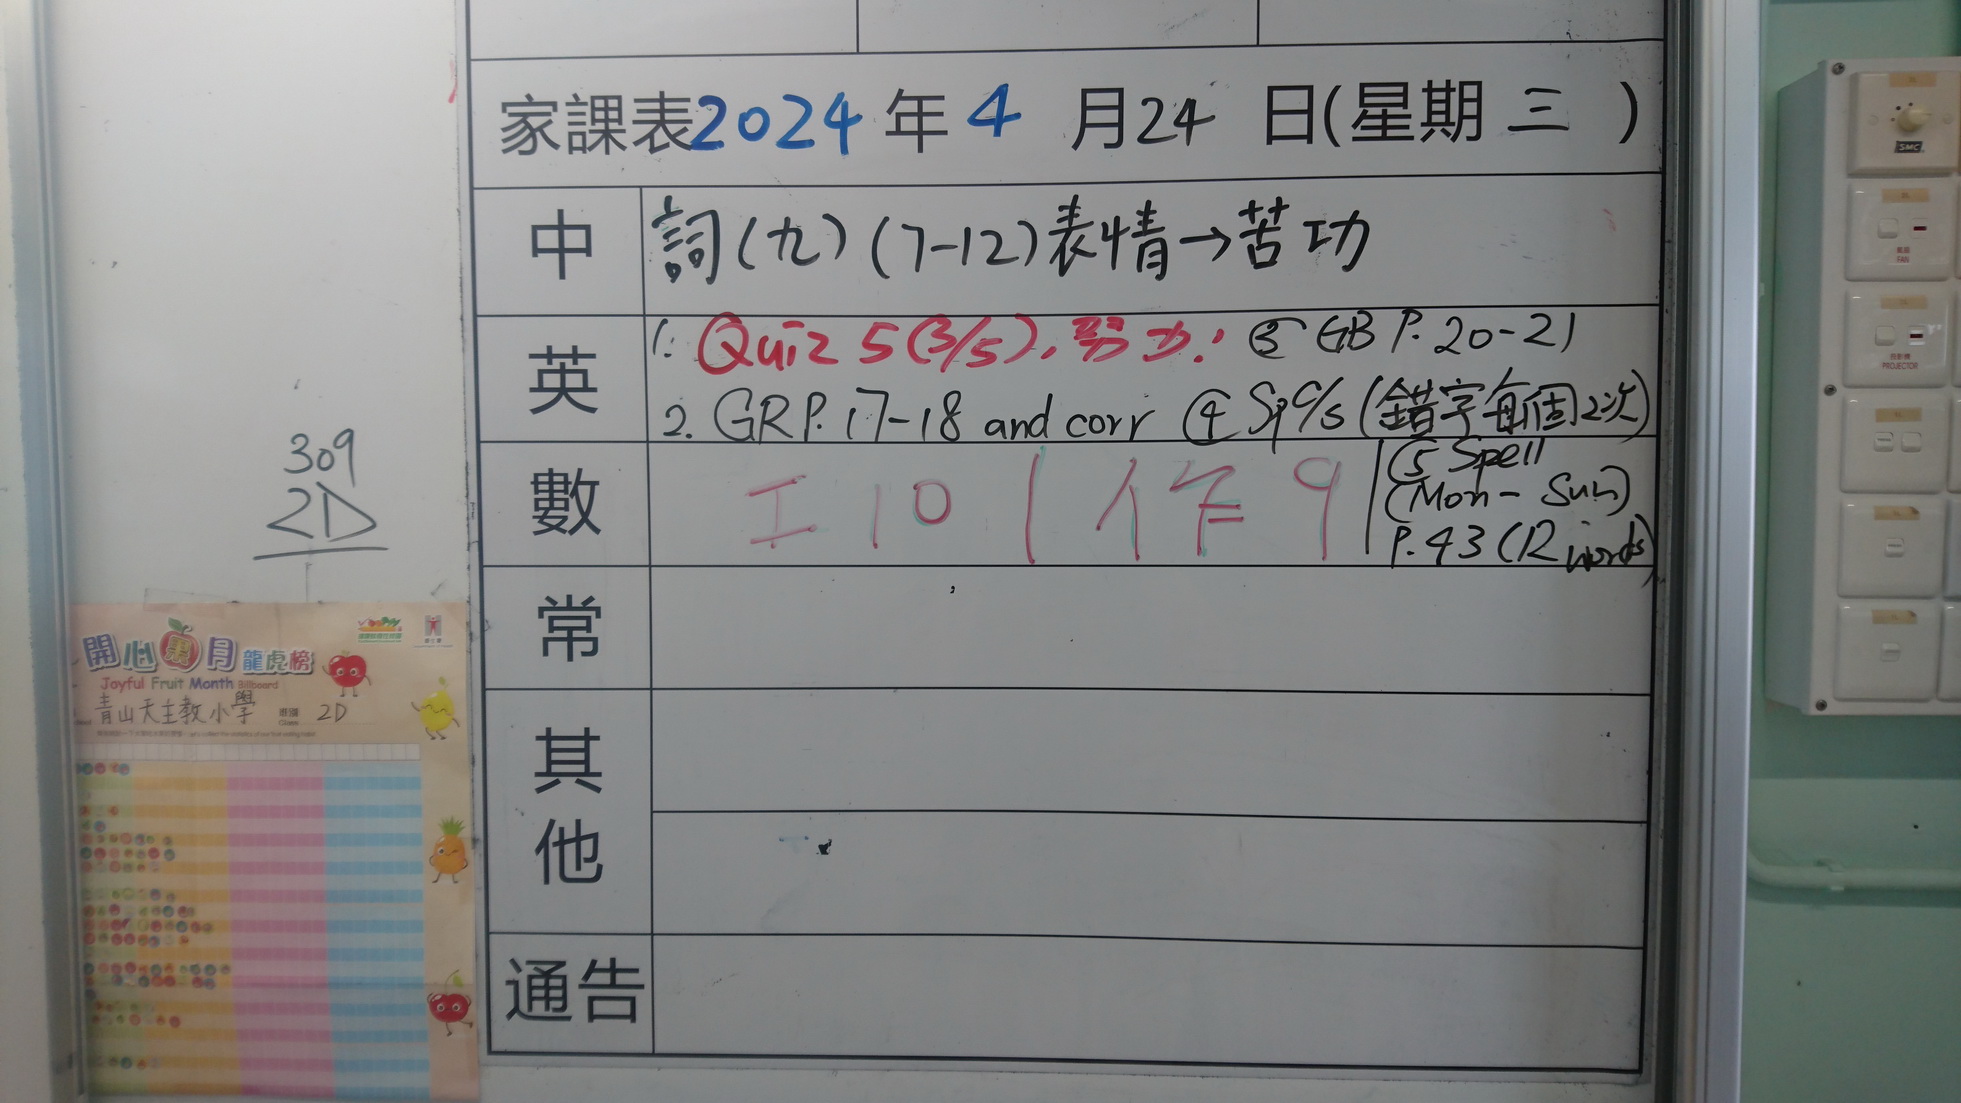 家課表2024年4月24日(星期三)
中 詞(九)(7-12)表情→苦功
英 1. Quiz 5(3/5),努力! ③ GB P.20-21
2. GRP.17-18 and corr ④ Sp c/s (錯字每個2次)
數 工10 | 作9 | ⑤ Spell
(Mon- Sun)
P.43 (12 words)
常
其他
通告
309
2D
開心果月龍虎榜
Joyful Fruit Month Billboard
青山天主教小學 班別 Class 2D
SMC
FAN
PROJECTOR